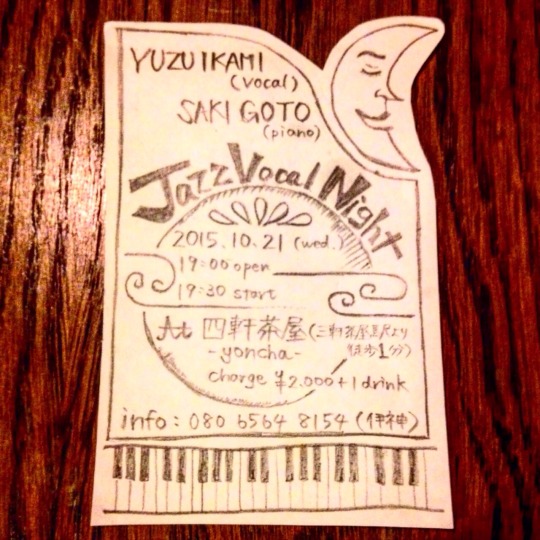 YUZU IKAMI
(vocal)
SAKI GOTO
(piano)
Jazz Vocal Night
2015.10.21 (wed.)
19:00 open
19:30 start
At 四軒茶屋 (三軒茶屋駅より
徒歩1分)
-yoncha-
charge ¥2.000 + 1 drink
info : 080 6564 8154 (伊神)